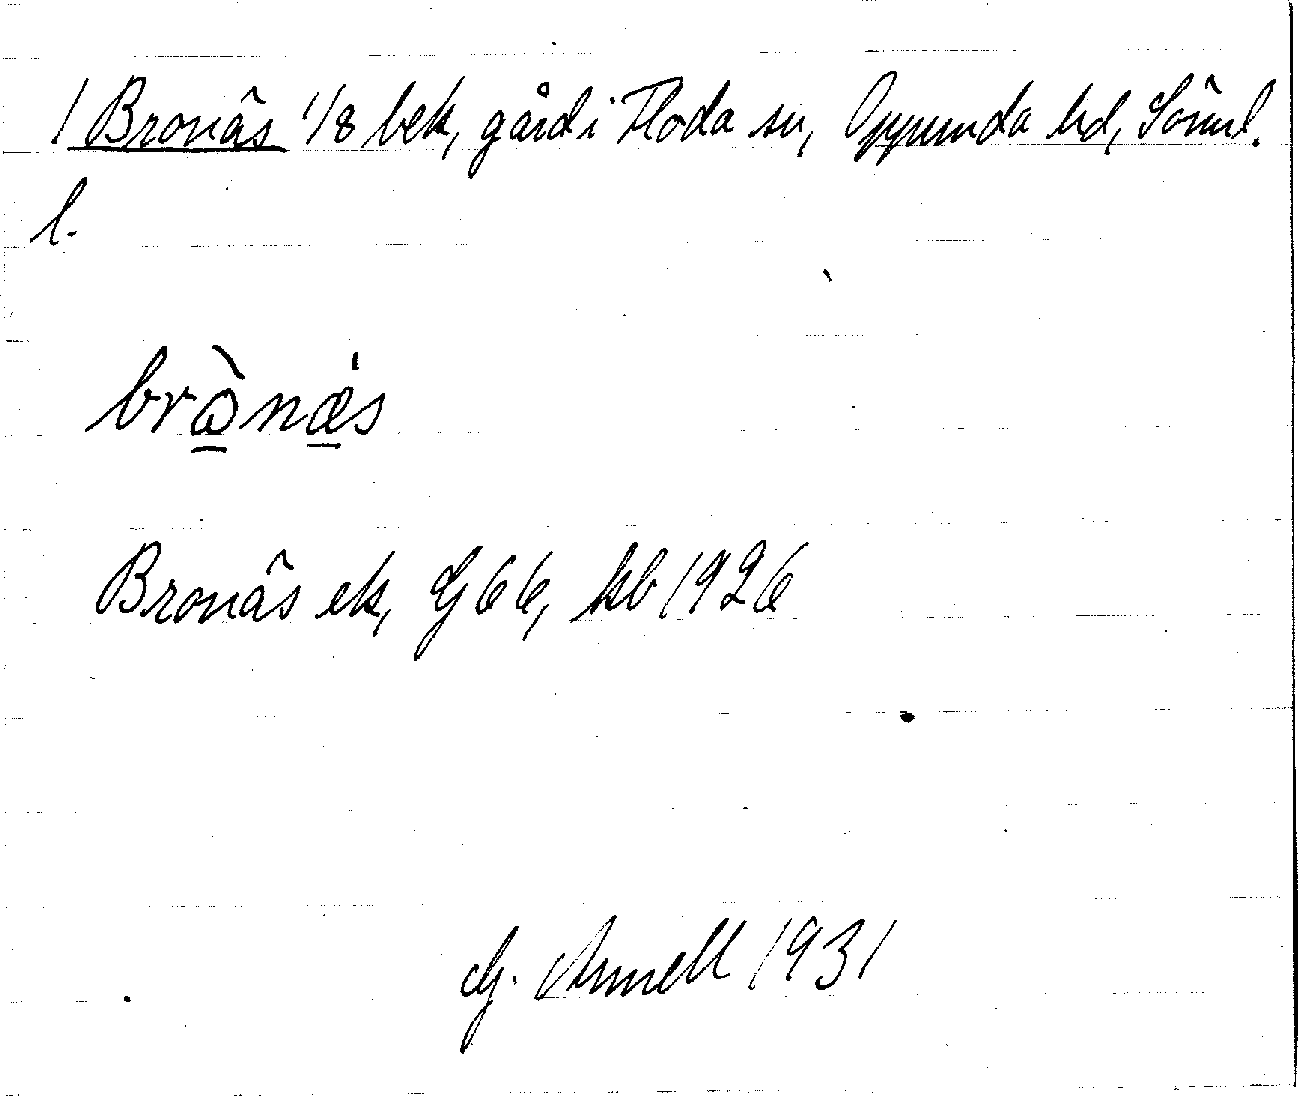 1 Bronäs 1/8 bek, gård i Floda sn, Oppunda hd, Söml.
l.
brὼnǽs
Bronäs ek, G 66, kb 1926
G. Arnell 1931